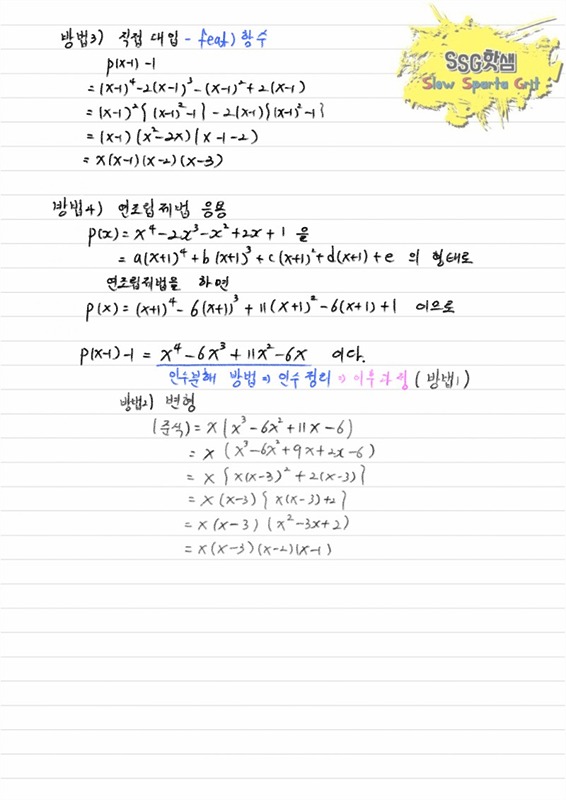 방법3) 직접 대입 - feat) 함수
SSG핫샘
Slow Sparta Grit
p(x-1) -1
= (x-1)⁴-2(x-1)³-(x-1)²+2(x-1)
= (x-1)²{(x-1)²-1} -2(x-1){(x-1)²-1}
= (x-1)(x²-2x)(x-1-2)
= x(x-1)(x-2)(x-3)
방법4) 연조립제법 응용
p(x)= x⁴-2x³-x²+2x+1 을
= a(x+1)⁴+b(x+1)³+c(x+1)²+d(x+1)+e 의 형태로
연조립제법을 하면
p(x) = (x+1)⁴-6(x+1)³+11(x+1)²-6(x+1)+1 이으로
p(x-1)-1 = x⁴-6x³+11x²-6x 이다.
인수분해 방법 ⇒ 인수정리 ⇒ 이후과정 (방법1)
방법2) 변형
(준식) = x(x³-6x²+11x-6)
= x (x³-6x²+9x+2x-6)
= x{x(x-3)²+2(x-3)}
= x(x-3){x(x-3)+2}
= x(x-3)(x²-3x+2)
= x(x-3)(x-2)(x-1)